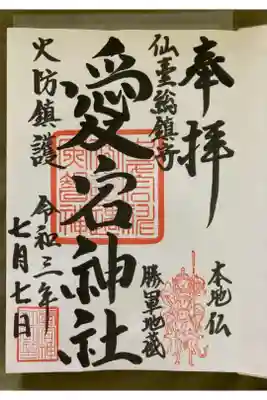 奉拝
本地仏
仙臺総鎮守
勝軍地蔵
愛宕神社
火防鎮護
令和三年
七月七日